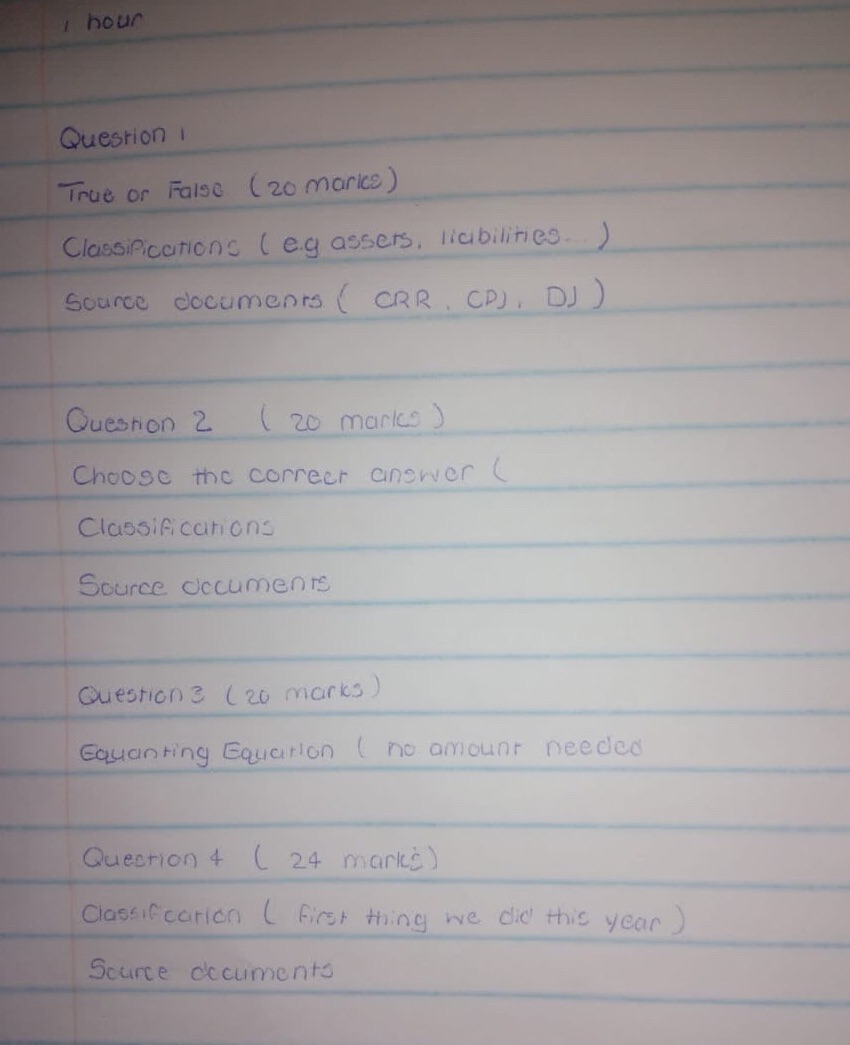 1 hour
Question 1
True or False (20 marks)
Classifications (e.g assets, liabilities... )
Source documents ( CRR, CPJ, DJ )
Question 2 ( 20 marks )
Choose the correct answer (
Classifications
Source documents
Question 3 ( 20 marks )
Equanting Equation ( no amount needed
Question 4 ( 24 marks )
Classification ( first thing we did this year )
Source documents